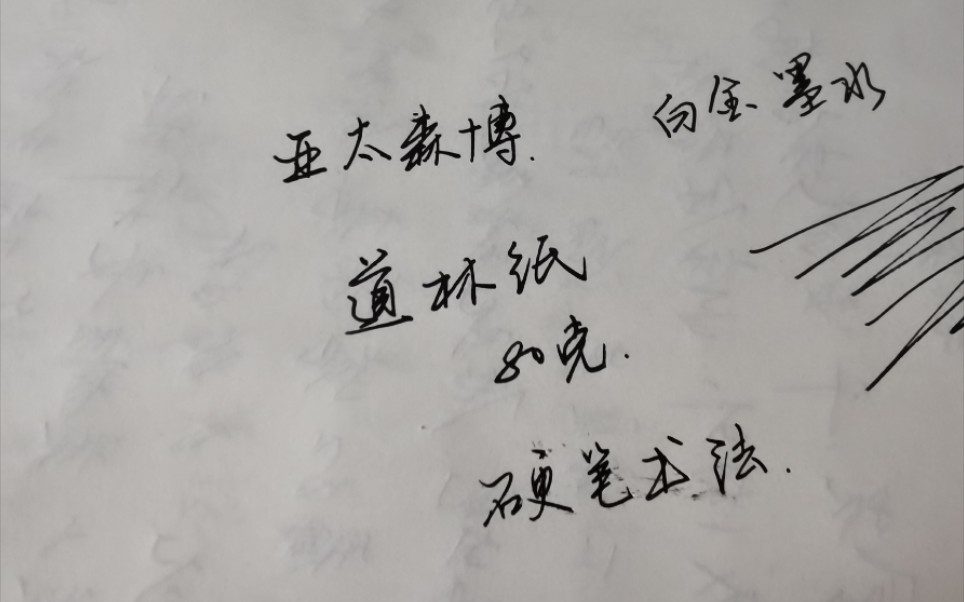 亚太森博.
白金墨水
道林纸
80克.
硬笔书法.